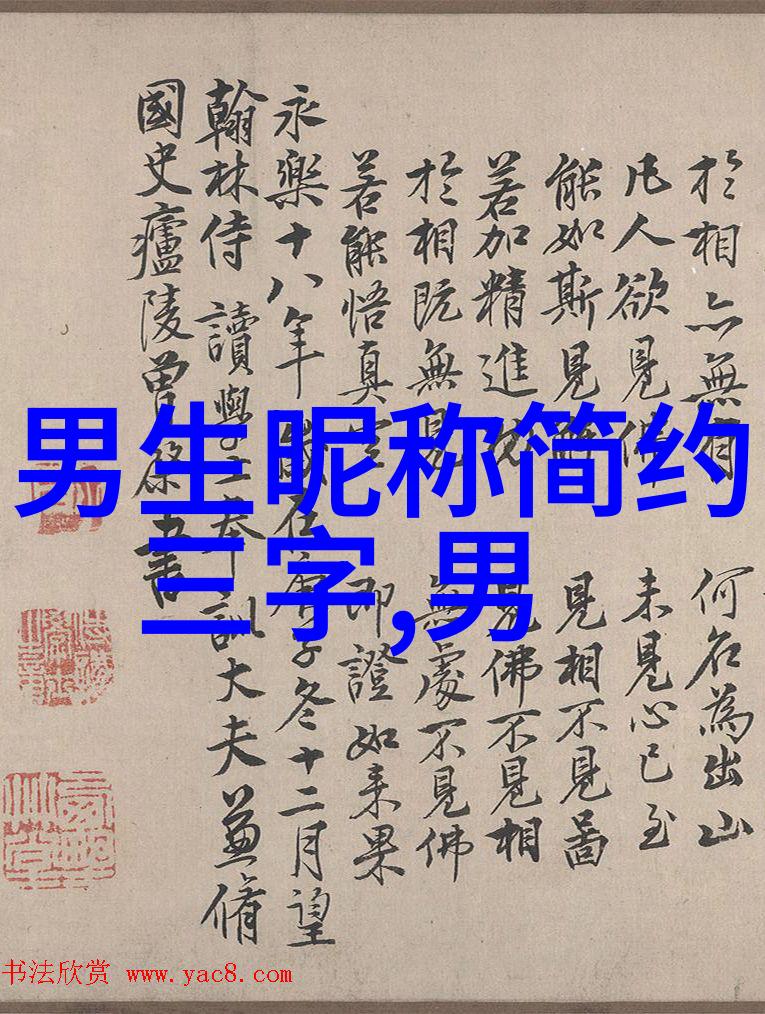 於相亦無有 何名為出山
凡人欲見佛 未見心已至
能如斯見 見相不見啚
若加精進 見佛不見相
於相既無見 無處不見佛
若能悟真空 即證如来果
永樂十八年歲在庚子冬十二月望
翰林侍讀學士奉訓大夫兼脩
國史廬陵曾棨書
男生昵称简约
三字,男
书法欣赏 www.yac8.com